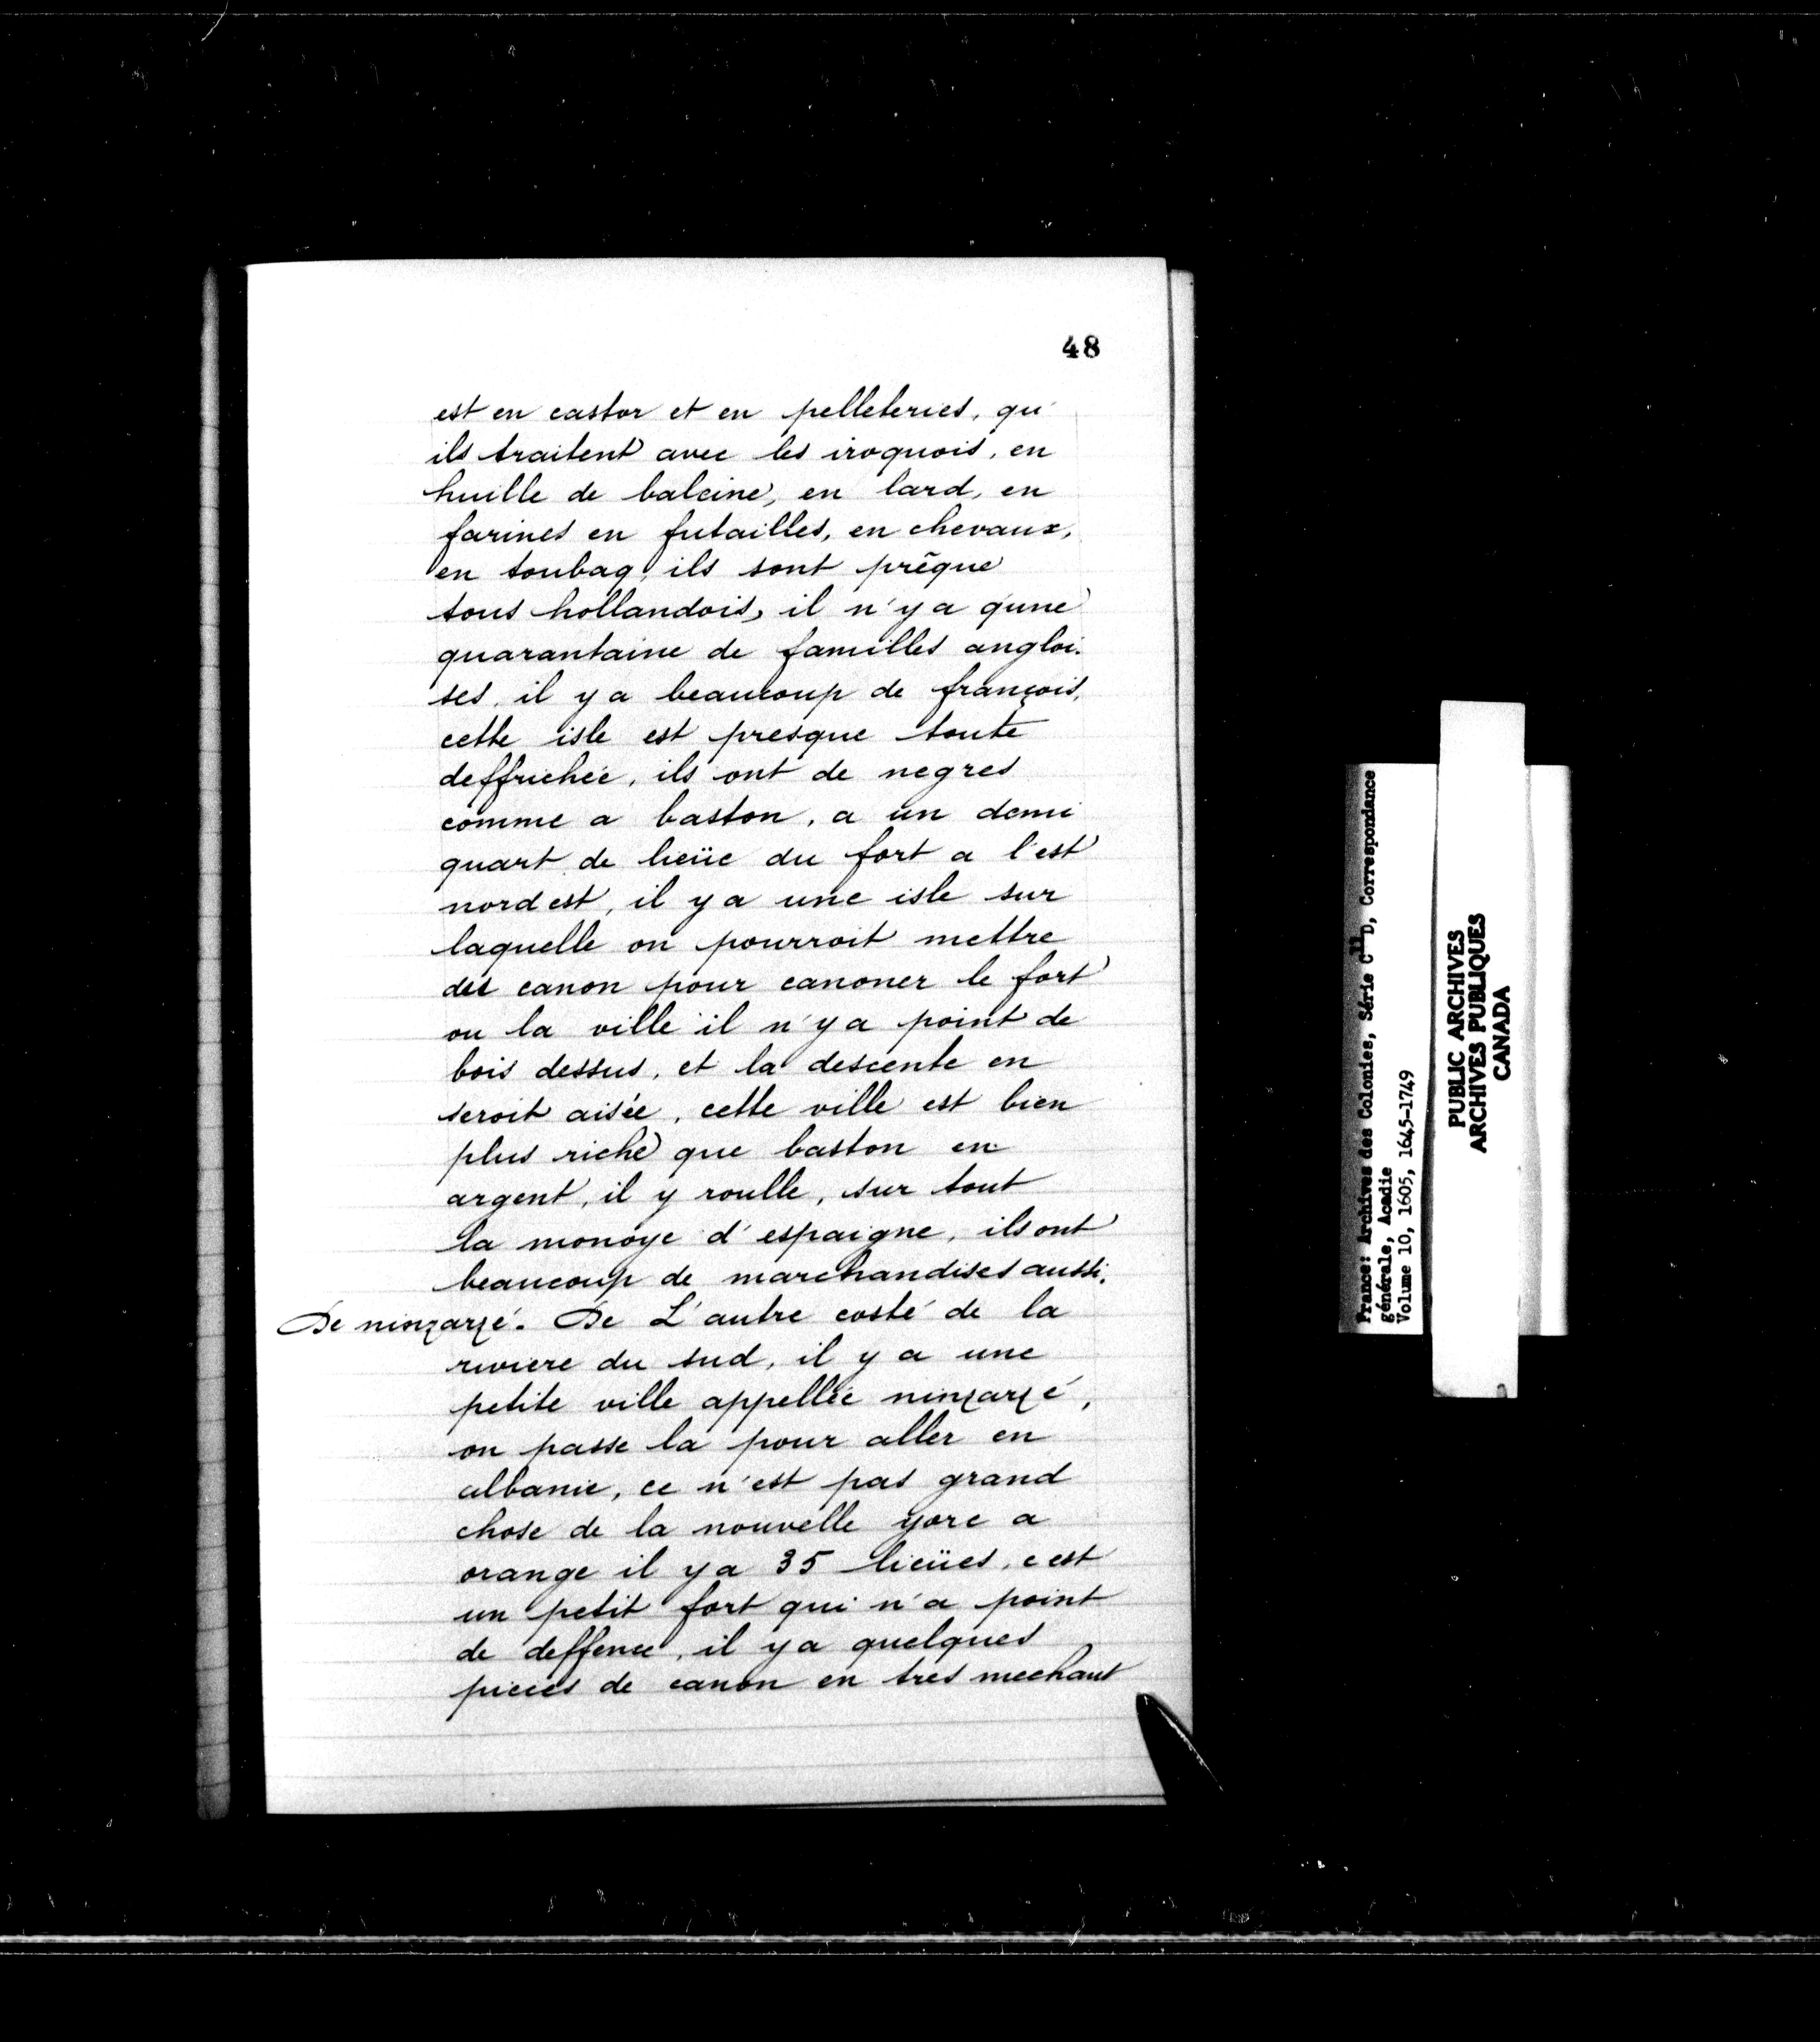 48
est en castor et en pelleteries, qu'
ils traitent avec les iroquois, en
huille de baleine, en lard, en
farines en futailles, en chevaux,
en toubaq, ils sont prêque
tous hollandois, il n'y a q'une
quarantaine de familles angloi-
ses, il y a beaucoup de françois,
cette isle est presque toute
deffrichée, ils ont de negres
comme a baston, a un demi
quart de lieüe du fort a l'est
nord est, il y a une isle sur
laquelle on pourroit mettre
des canon pour canoner le fort
ou la ville il n'y a point de
bois dessus, et la descente en
seroit aisée, cette ville est bien
plus riche que baston en
argent, il y roulle, sur tout
la monoye d'espaigne, ils ont
beaucoup de marchandises aussi.
De ninzarzé. De L'autre costé de la
riviere du sud, il y a une
petite ville appellée ninzarzé,
on passe la pour aller en
albanie, ce n'est pas grand
chose de la nouvelle yorc a
orange il y a 35 lieües, c'est
un petit fort qui n'a point
de deffence, il y a quelques
pieces de canon en tres mechant
France: Archives des Colonies, Série C11D, Correspondance
générale, Acadie
Volume 10, 1605, 1645-1749
PUBLIC ARCHIVES
ARCHIVES PUBLIQUES
CANADA